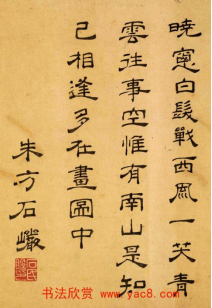 曉窻白髮戰西風一笑青
雲往事空惟有南山是知
己相逢多在畫圖中
朱方石巖
书法欣赏 www.yac8.com